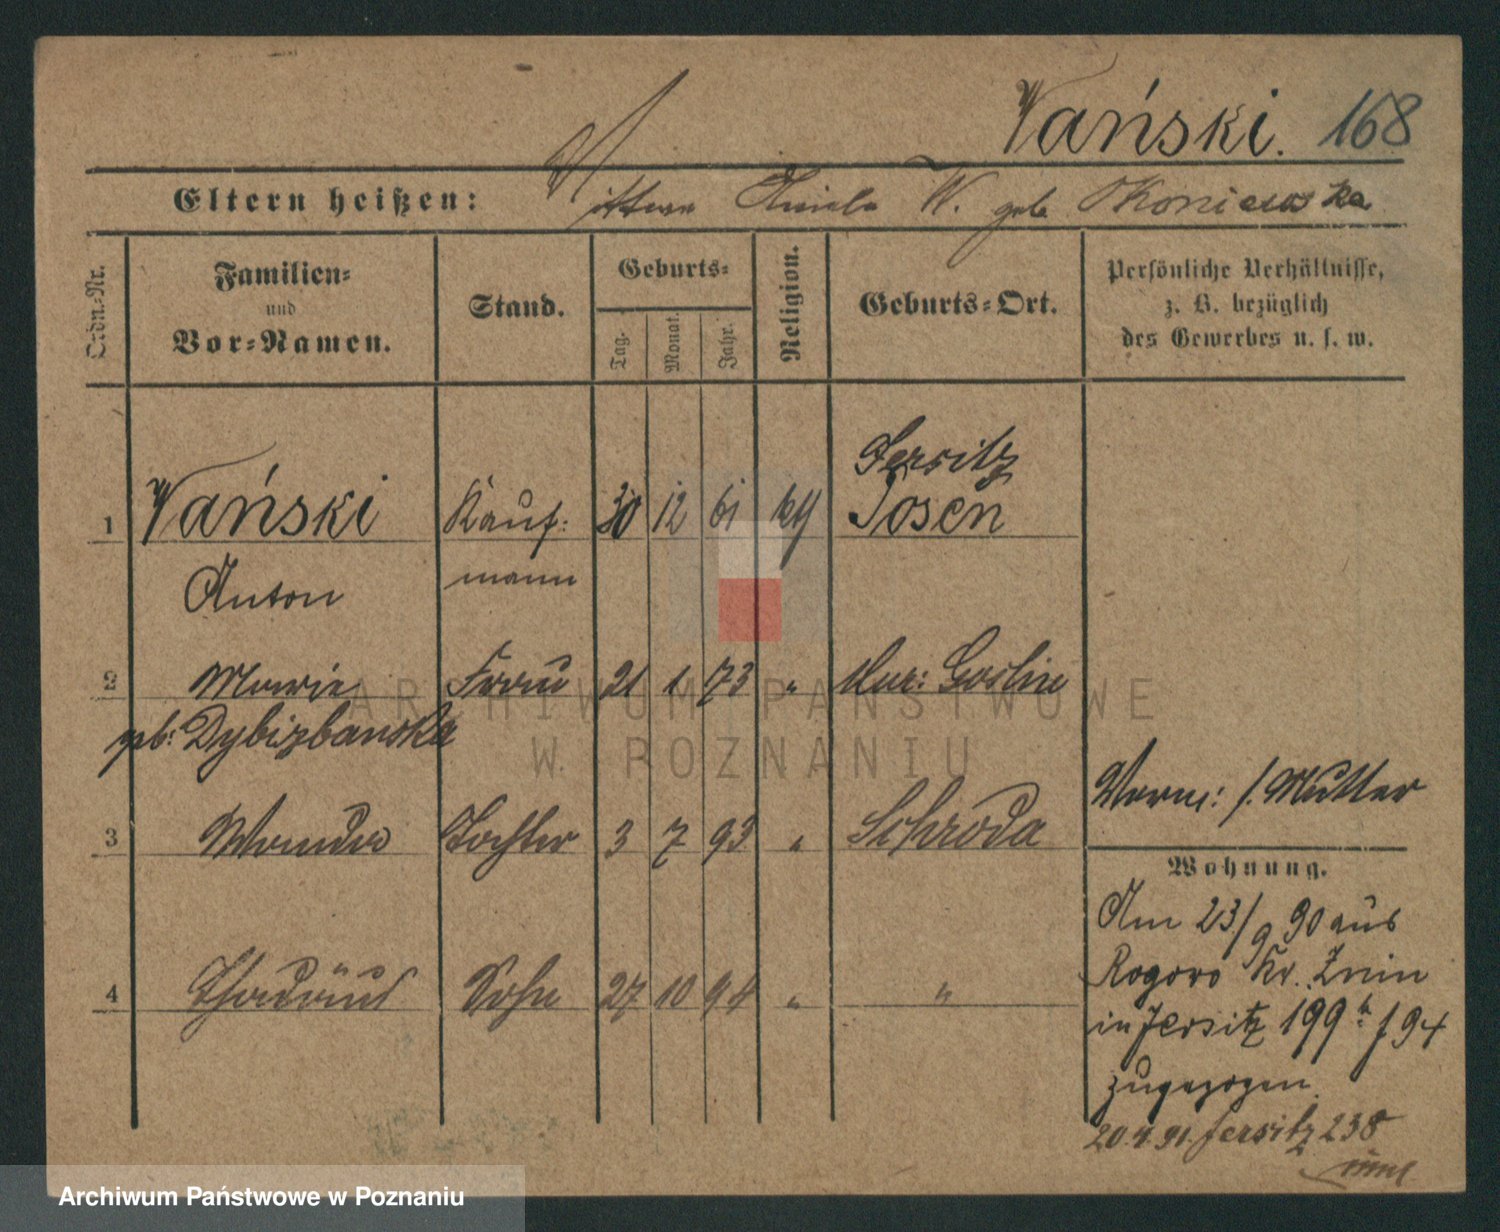 Wański. 168
Eltern heißen: Aniela W. geb. Okoniewska
Ordn.-Nr.
Familien-
und
Vor-Namen.
Stand.
Geburts-
Tag.
Monat.
Jahr.
Religion.
Geburts-Ort.
Persönliche Verhältnisse,
z. B. bezüglich
des Gewerbes u. s. w.
Jersitz
1 Wański Kauf- 30 12 61 Posen
Anton mann
2 Marie Frau 21 1 73 " Mur: Goslin
geb: Dybizbanska
Verm: s. Mutter
3 Wanda Tochter 3 7 93 " Schroda
Wohnung.
Am 23/9 90 aus
4 Thadäus Sohn 27 10 94 " "
Rogowo Kr. Znin
in Jersitz 199 94
zugezogen
20.4.91. Jersitz 238
ARCHIWUM PAŃSTWOWE
W POZNANIU
Archiwum Państwowe w Poznaniu